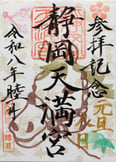 参拝記念
元旦
静岡天満宮
令和八年睦月